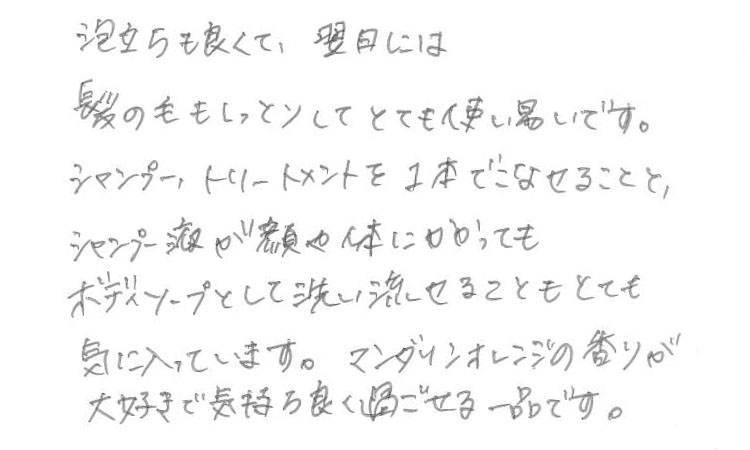 泡立ちも良くて、翌日には
髪の毛もしっとりしてとても使い易いです。
シャンプー、トリートメントを1本でこなせることと、
シャンプー液が顔や体にかかっても
ボディソープとして洗い流しせることもとても
気に入っています。マンダリンオレンジの香りが
大好きで気持ち良く過ごせる一品です。